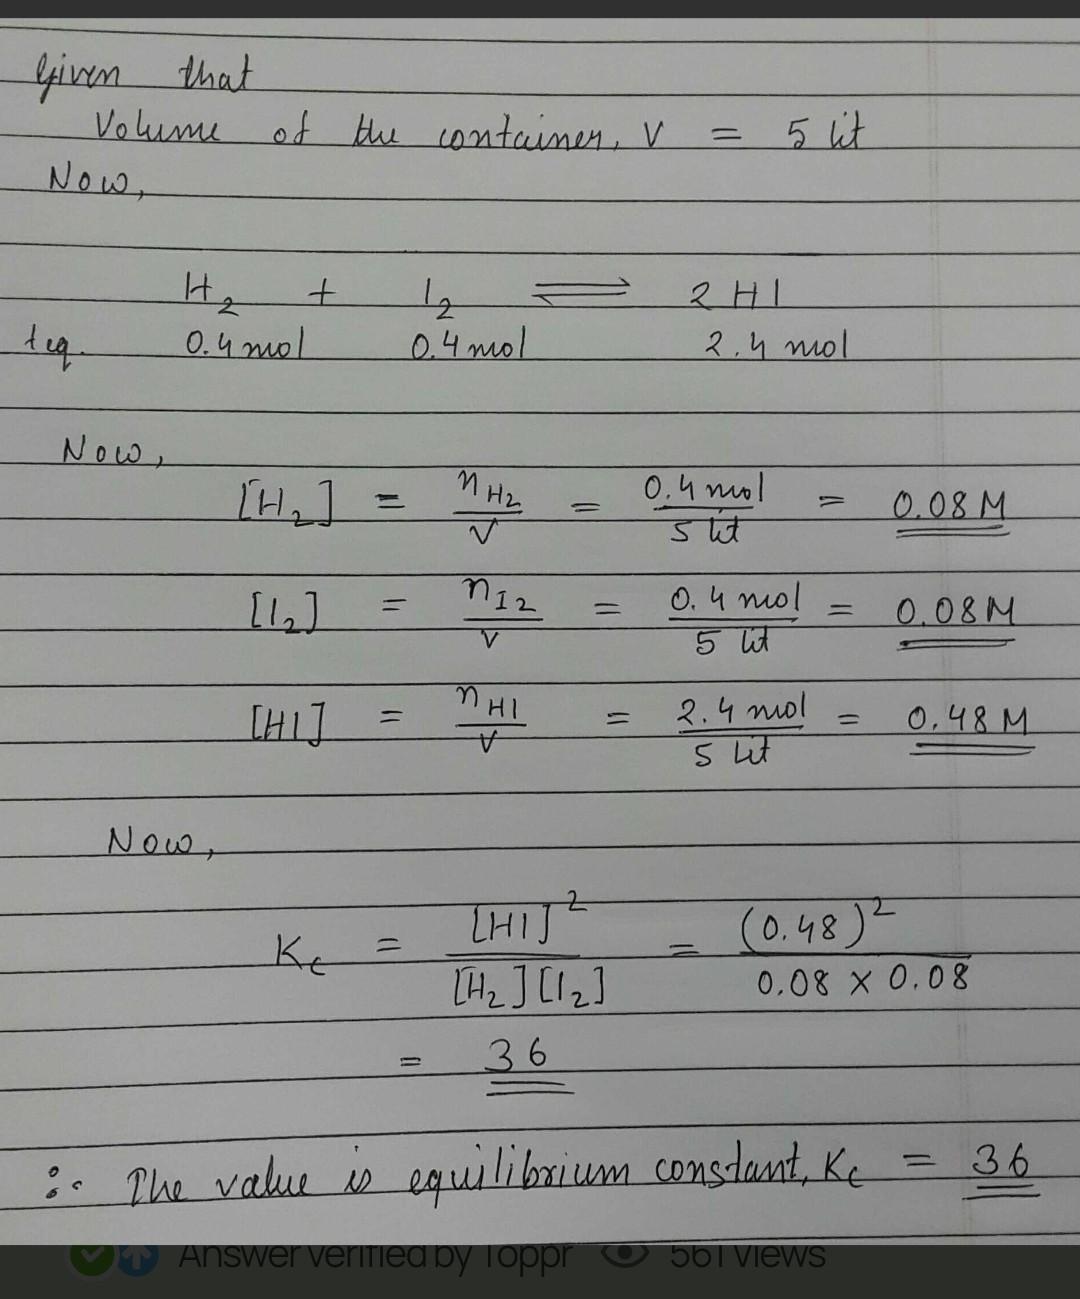 Given that
Volume of the container, V = 5 lit
Now,
H₂ + I₂ ⇌ 2 HI
teq. 0.4 mol 0.4 mol 2.4 mol
Now,
[H₂] = nH₂/V = 0.4 mol/5 lit = 0.08 M
[I₂] = nI₂/V = 0.4 mol/5 lit = 0.08 M
[HI] = nHI/V = 2.4 mol/5 lit = 0.48 M
Now,
Kc = [HI]²/[H₂][I₂] = (0.48)²/0.08 × 0.08
= 36
∴ The value is equilibrium constant, Kc = 36
Answer verified by Toppr 561 views